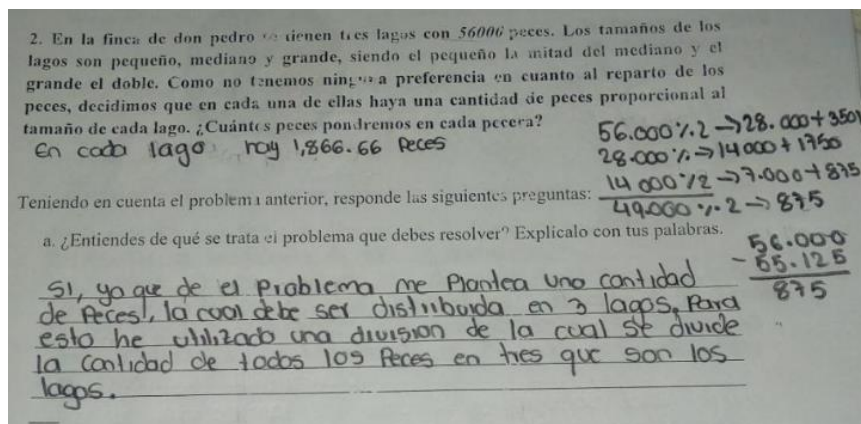 2. En la finca de don pedro se tienen tres lagos con 56000 peces. Los tamaños de los
lagos son pequeño, mediano y grande, siendo el pequeño la mitad del mediano y el
grande el doble. Como no tenemos ninguna preferencia en cuanto al reparto de los
peces, decidimos que en cada una de ellas haya una cantidad de peces proporcional al
tamaño de cada lago. ¿Cuántos peces pondremos en cada pecera?
En cada lago hay 1,866.66 Peces
56.000 % 2 → 28.000 + 3501
28.000 % → 14000 + 1750
14000 % 2 → 7.000 + 875
49.000 % 2 → 875
Teniendo en cuenta el problema anterior, responde las siguientes preguntas:
a. ¿Entiendes de qué se trata el problema que debes resolver? Explícalo con tus palabras.
56.000
- 55.125
875
SI, ya que de el Problema me Plantea una cantidad
de Peces, la cual debe ser distribuida en 3 lagos, Para
esto he utilizado una division de la cual se divide
la cantidad de todos los Peces en tres que son los
lagos.